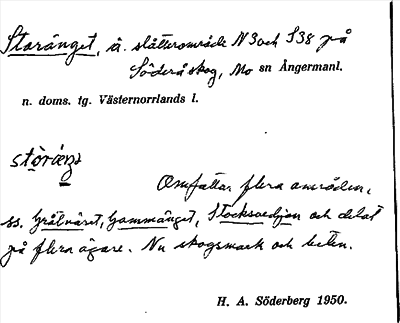 Storänget, ä. slåtterområde N3 och S38 på
Söderåskog, Mo sn Ångermanl.
n. doms. tg. Västernorrlands l.
stòräŋt
Omfattar flera områden,
ss. Gråtväret, Gammänget, Stocksvedjan och delat
på flera ägare. Nu skogsmark och beten.
H. A. Söderberg 1950.